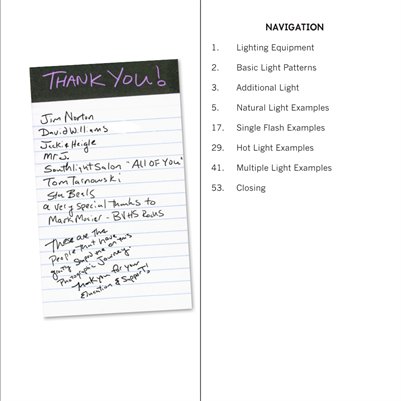 THANK YOU!
Jim Norton
David Williams
Jack & Heigle
Mr J.
Southlight Salon "ALL OF YOU"
Tom Tarnowski
Stu Beels
a very special thanks to
Mark Mosier - BVHS Rocks
These are the
People that have
on this
Photographic Journey.
Thank you for your
Education & Support!
NAVIGATION
1. Lighting Equipment
2. Basic Light Patterns
3. Additional Light
5. Natural Light Examples
17. Single Flash Examples
29. Hot Light Examples
41. Multiple Light Examples
53. Closing